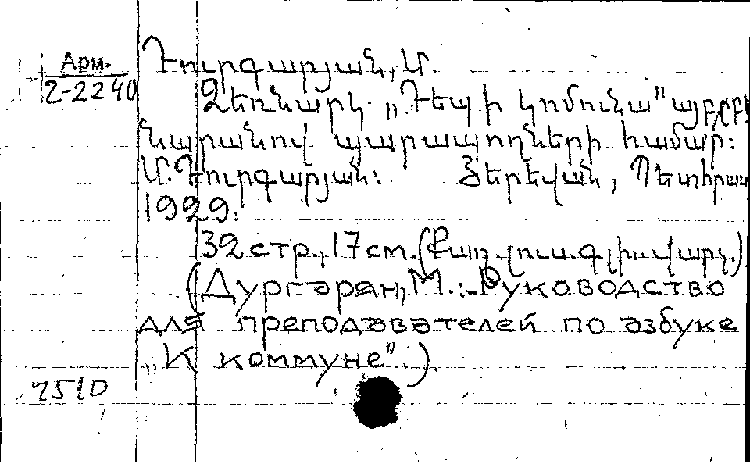 Арм.
2-2240
Դուրգարյան, Մ.
Ձեռնարկ „Դեպի կոմունա" այբբե
նարանով պարապողների համար:
Մ. Դուրգարյան: Յերեվան, Պետհրատ
1929:
32 стр., 17 см. (Քաղ. լուս. գլխ. վարչ.)
(Дургарян, М.: Руководство
для преподавателей по азбуке
„К коммуне")
7510